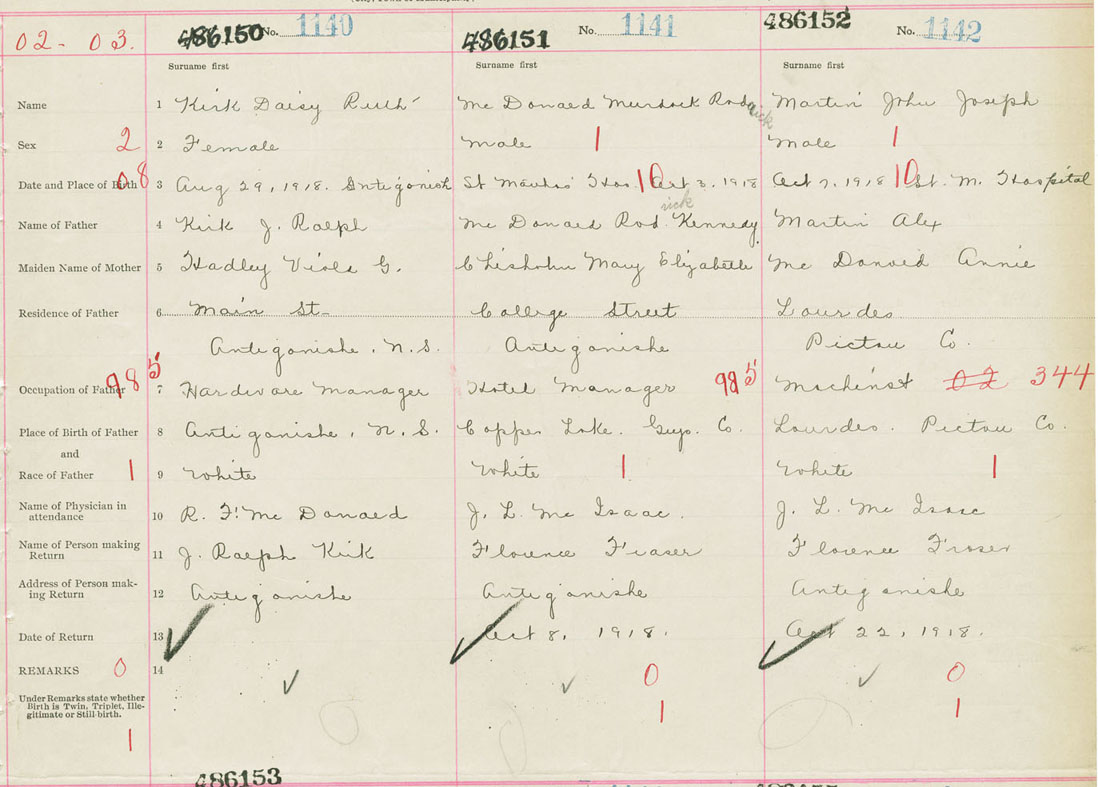 02 - 03.
486150 No. 1140
486151 No. 1141
486152 No. 1142
Surname first Surname first Surname first
Name 1 Kirk Daisy Ruth Mc Donald Murdock Roderick Martin John Joseph
Sex 2 2 Female Male 1 Male 1
Date and Place of Birth 08 3 Aug 29, 1918. Antigonish St Martha's Hos. 10 Oct 3, 1918 Oct 7, 1918 10 St. M. Hospital
Name of Father 4 Kirk J. Ralph Mc Donald Rod. rick Kennedy Martin Alex
Maiden Name of Mother 5 Hadley Viola G. Chisholm Mary Elizabeth Mc Donald Annie
Residence of Father 6 Main St. College Street Lourdes
Antigonishe, N.S. Antigonishe Pictou Co.
Occupation of Father 985 7 Hardware Manager Hotel Manager 985 Machinst 02 344
Place of Birth of Father 8 Antigonishe, N.S. Copper Lake. Guys. Co. Lourdes. Pictou Co.
and
Race of Father 1 9 White White 1 White 1
Name of Physician in
attendance 10 R. F. Mc Donald J. L. Mc Isaac. J. L. Mc Isaac
Name of Person making
Return 11 J. Ralph Kirk Florence Fraser Florence Fraser
Address of Person mak-
ing Return 12 Antigonishe Antigonishe Antigonishe
Date of Return 13 Oct 8, 1918. Oct 22, 1918.
REMARKS 0 14 0 0
Under Remarks state whether
Birth is Twin, Triplet, Ille-
gitimate or Still birth.
1 1 1
486153